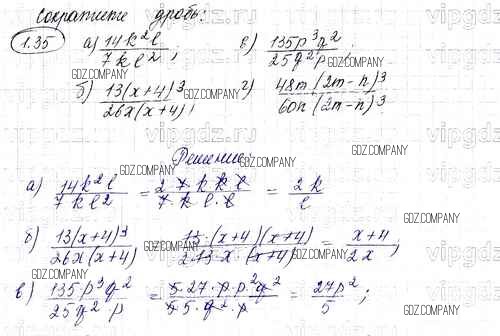 Сократите дробь:
1.35 а) 14k²l / 7kl² ; в) 135p³q² / 25q²p ;
б) 13(x+4)³ / 26x(x+4) ; г) 48m(2m-n)³ / 60n(2m-n)³
Решение:
а) 14k²l / 7kl² = 2 7 k k l / 7 k l · l = 2k / l
б) 13(x+4)³ / 26x(x+4) = 13·(x+4)(x+4) / 2·13·x·(x+4) = x+4 / 2x ;
в) 135p³q² / 25q²·p = 5·27·p·p²q² / 5·5·q²·p = 27p² / 5 ;
GDZ.COMPANY
vipgdz.ru